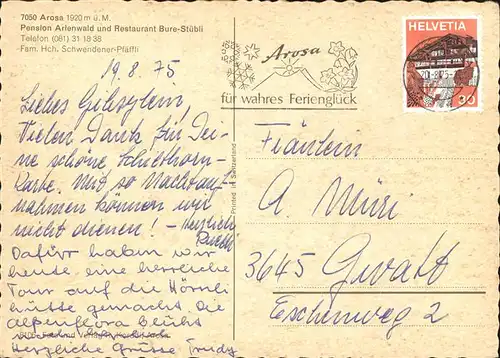 7050 Arosa 1920 m ü. M.
Pension Arlenwald und Restaurant Bure-Stübli
Telefon (081) 31 18 38
Fam. Hch. Schwendener-Pfäffli
19.8.75
Liebes
Vielen Dank für Dei-
ne schöne Schilthorn-
Karte. Mit so Nachtauf-
nahmen können wir
nicht dienen! – Herzlich
Dafür haben wir
heute eine herrliche
Tour auf die Hörnli
hütte gemacht. Die
Alpenflora blüht
Herzliche Grüsse Trudy
Printed in Switzerland
Arosa
für wahres Ferienglück
HELVETIA
30
Fräulein
A. Müri
3645 Gwatt
Eschenweg 2